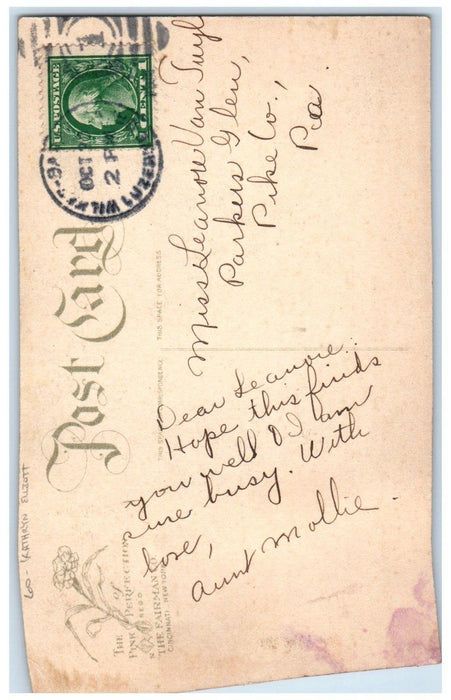 U.S. POSTAGE
1 CENT 1
OCT
2 P
Post Card
THIS SPACE FOR ADDRESS
Miss Leanore Van Tuyl
Parkers Glen,
Pike Co.,
Pa.
Dear Leanore:
Hope this finds
you well & I am
sure busy. With
love,
Aunt Mollie.
THE
PINK OF
PERFECTION
REG'D
THE FAIRMAN CO.
CINCINNATI · NEW YORK
KATHRYN ELLIOTT